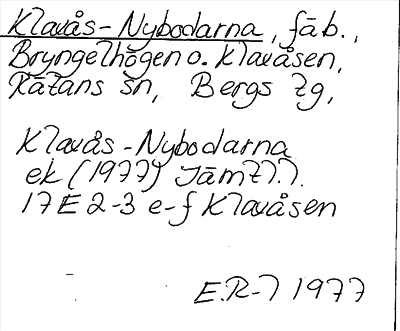 Klavås-Nybodarna, fäb.,
Bryngelhögen o. Klavåsen,
Rätans sn, Bergs tg,
Klavås-Nybodarna
ek (1977) Jämtl.l.
17E 2-3 e-f Klavåsen
E.R-l 1977